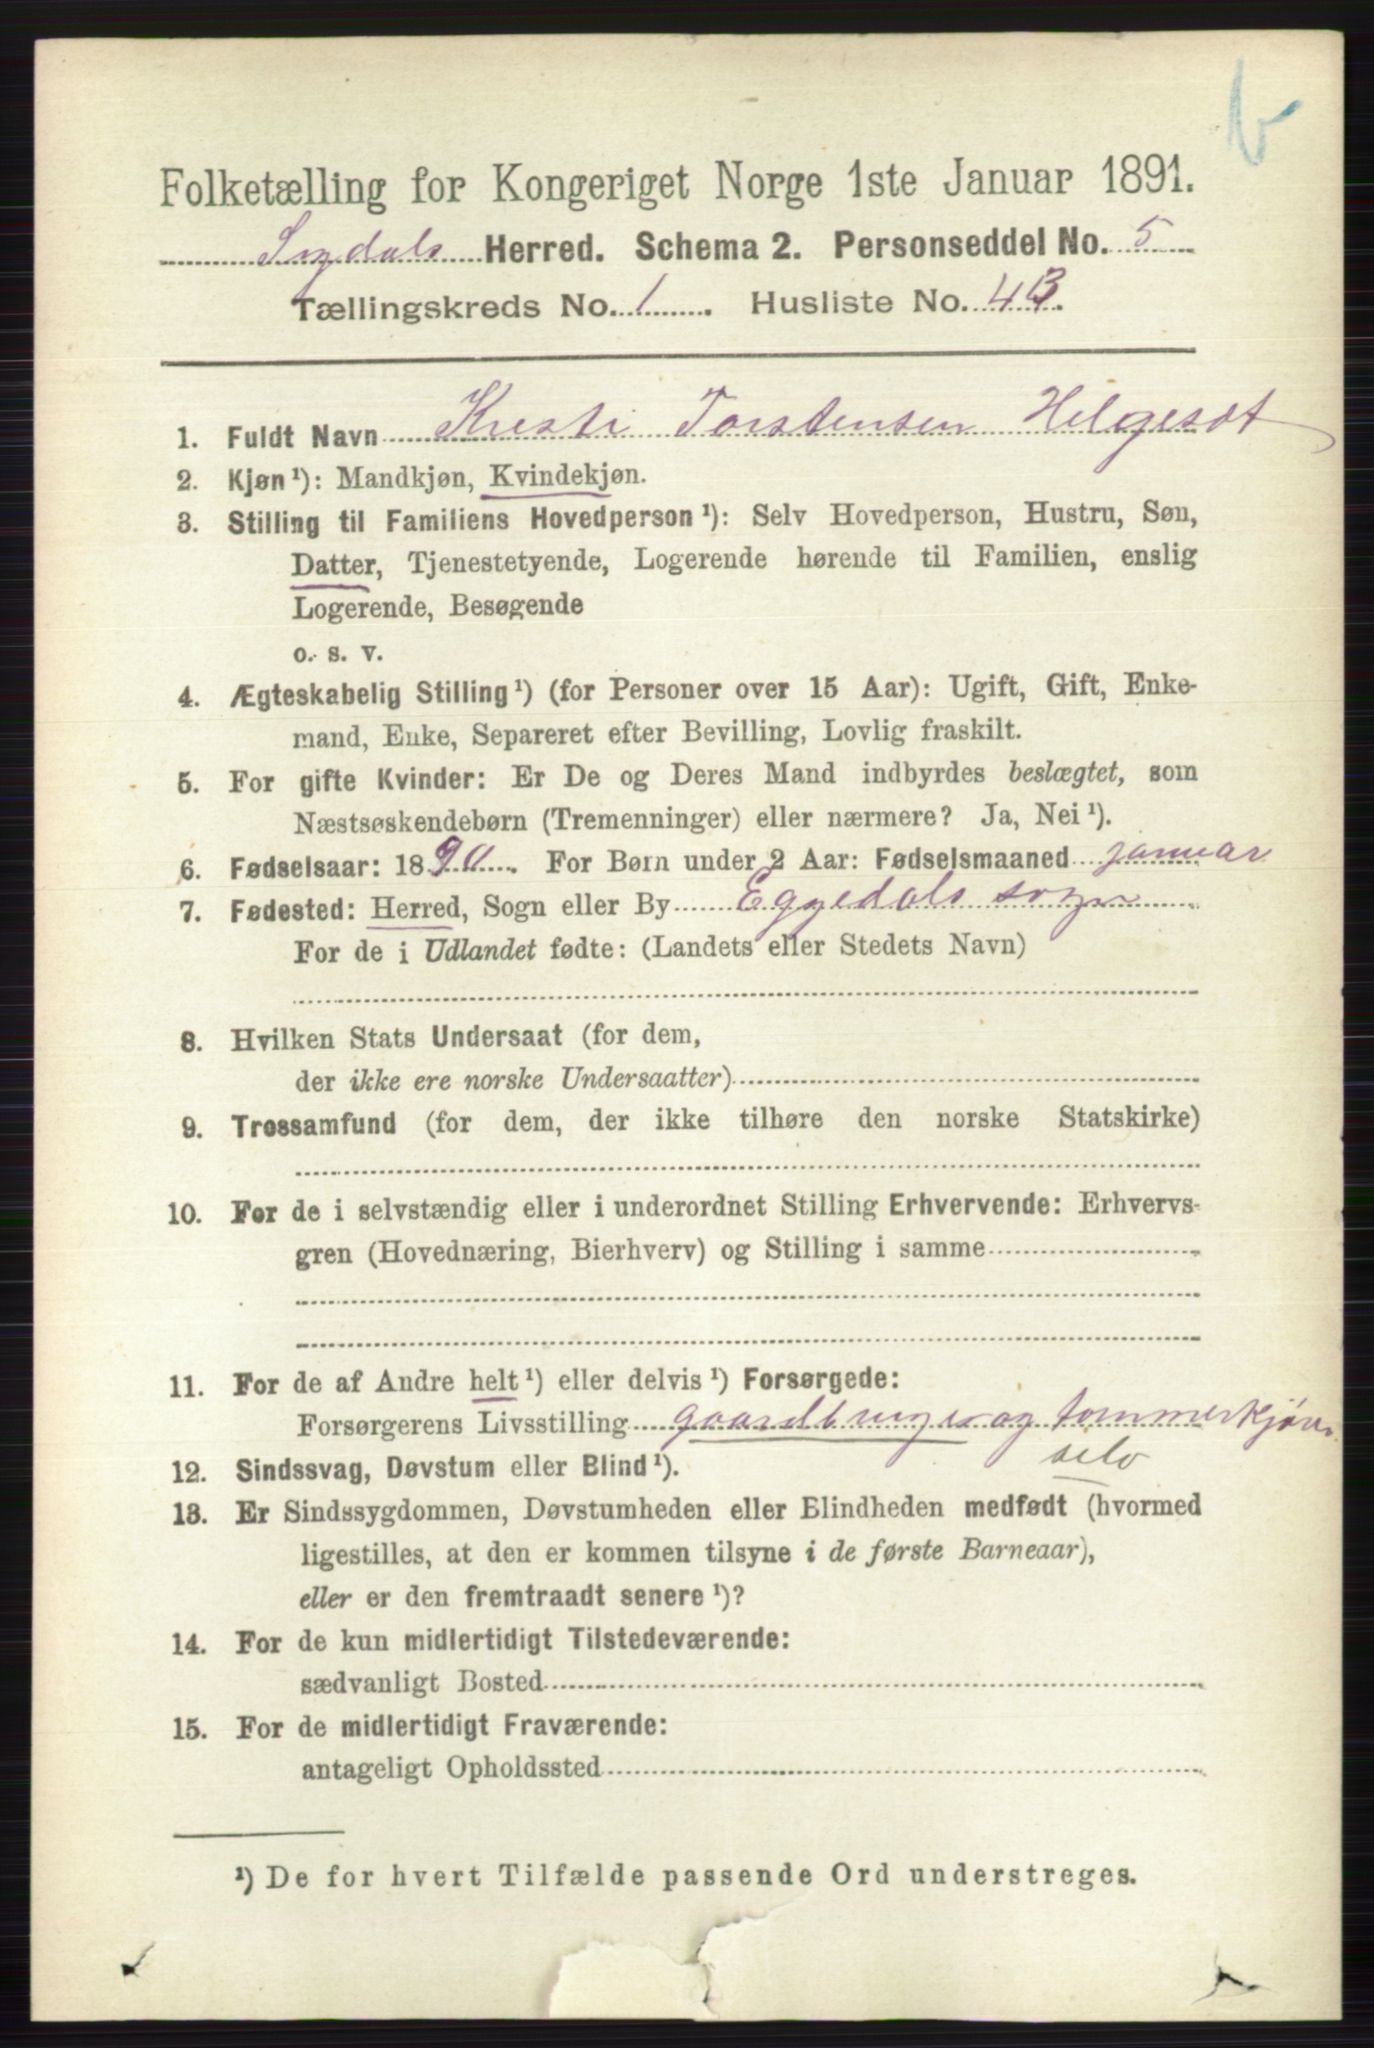 Folketælling for Kongeriget Norge 1ste Januar 1891.
Sigdals Herred. Schema 2. Personseddel No. 5
Tællingskreds No. 1. Husliste No. 4 B.
1. Fuldt Navn Kresti Torstensen Helgesdt
2. Kjøn ¹): Mandkjøn, Kvindekjøn.
3. Stilling til Familiens Hovedperson ¹): Selv Hovedperson, Hustru, Søn,
Datter, Tjenestetyende, Logerende hørende til Familien, enslig
Logerende, Besøgende
o. s. v.
4. Ægteskabelig Stilling ¹) (for Personer over 15 Aar): Ugift, Gift, Enke-
mand, Enke, Separeret efter Bevilling, Lovlig fraskilt.
5. For gifte Kvinder: Er De og Deres Mand indbyrdes beslægtet, som
Næstsøskendebørn (Tremenninger) eller nærmere? Ja, Nei ¹).
6. Fødselsaar: 1890. For Børn under 2 Aar: Fødselsmaaned januar
7. Fødested: Herred, Sogn eller By Eggedals sogn
For de i Udlandet fødte: (Landets eller Stedets Navn)
8. Hvilken Stats Undersaat (for dem,
der ikke ere norske Undersaatter)
9. Trossamfund (for dem, der ikke tilhøre den norske Statskirke)
10. For de i selvstændig eller i underordnet Stilling Erhvervende: Erhvervs-
gren (Hovednæring, Bierhverv) og Stilling i samme
11. For de af Andre helt ¹) eller delvis ¹) Forsørgede:
Forsørgerens Livsstilling gaardbruger og tømmerkjører
selv
12. Sindssvag, Døvstum eller Blind ¹).
13. Er Sindssygdommen, Døvstumheden eller Blindheden medfødt (hvormed
ligestilles, at den er kommen tilsyne i de første Barneaar),
eller er den fremtraadt senere ¹)?
14. For de kun midlertidigt Tilstedeværende:
sædvanligt Bosted
15. For de midlertidigt Fraværende:
antageligt Opholdssted
¹) De for hvert Tilfælde passende Ord understreges.